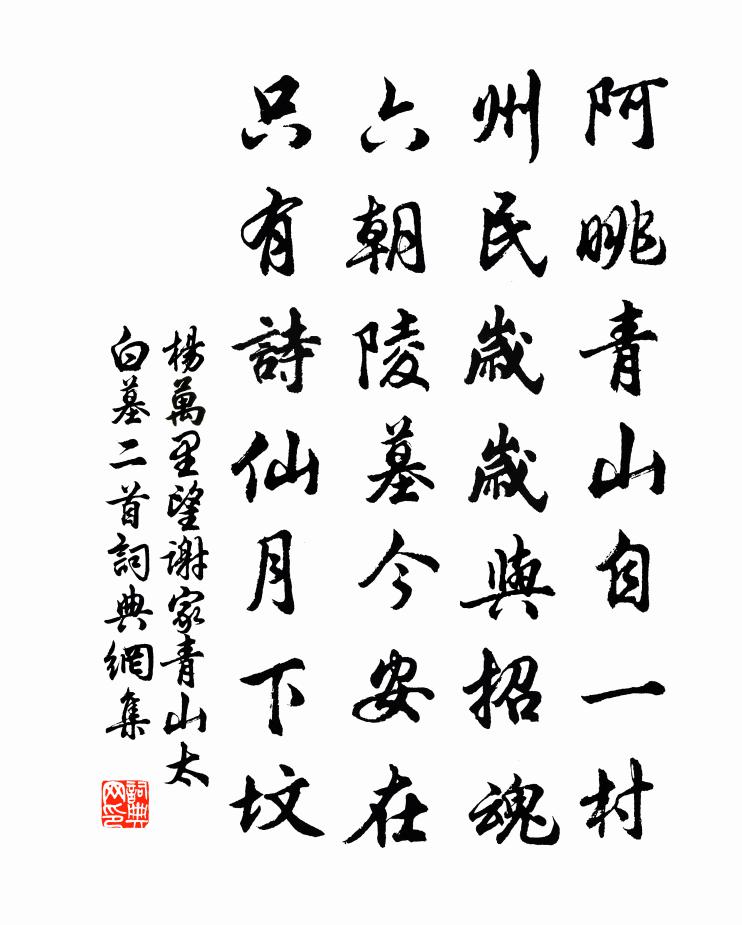 阿眺青山自一村
州民歲歲與招魂
六朝陵墓今安在
只有詩仙月下墳
楊萬里望謝家青山太
白墓二首詞典網集
詞典網印